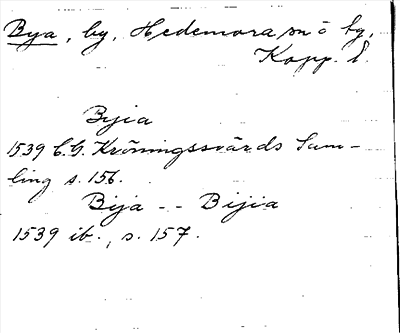 Bya, by, Hedemora sn o by,
Kopp. l.
Byia
1539 C.G. Kröningssvärds Sam-
ling s. 156.
Bija - - Bijia
1539 ib., s. 157.